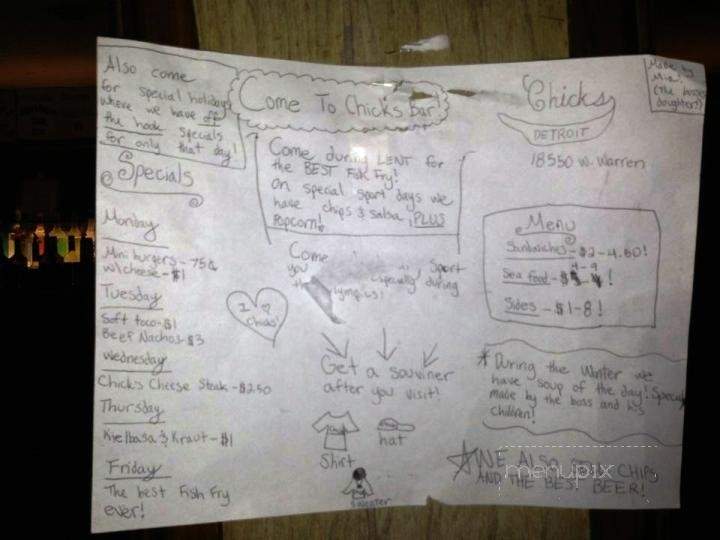 Also come
for special holidays
where we have off
the hook specials
for only that day!
Specials
Monday
Mini burgers - 75¢
w/cheese - $1
Tuesday
Soft taco - $1
Beef Nachos - $3
Wednesday
Chicks Cheese Steak - $2.50
Thursday
Kielbasa & Kraut - $1
Friday
The best Fish Fry
ever!
Come To Chick's Bar!
Come during LENT for
the BEST Fish Fry!
On special sport days we
have chips & salsa, PLUS
Popcorn!
Come Sport
you especially during
I ♡
Chicks!
Get a souviner
after you visit!
Shirt
hat
Sweater
Chicks
DETROIT
18550 W. Warren
Made by
Mia!
(the bosses
daughter!)
Menu
Sandwiches - $2-4.50!
Sea food - $4-9!
Sides - $1-8!
* During the Winter we
have soup of the day! Specialy
made by the boss and his
children!
WE ALSO CHIPS
AND THE BEST BEER!
menupix